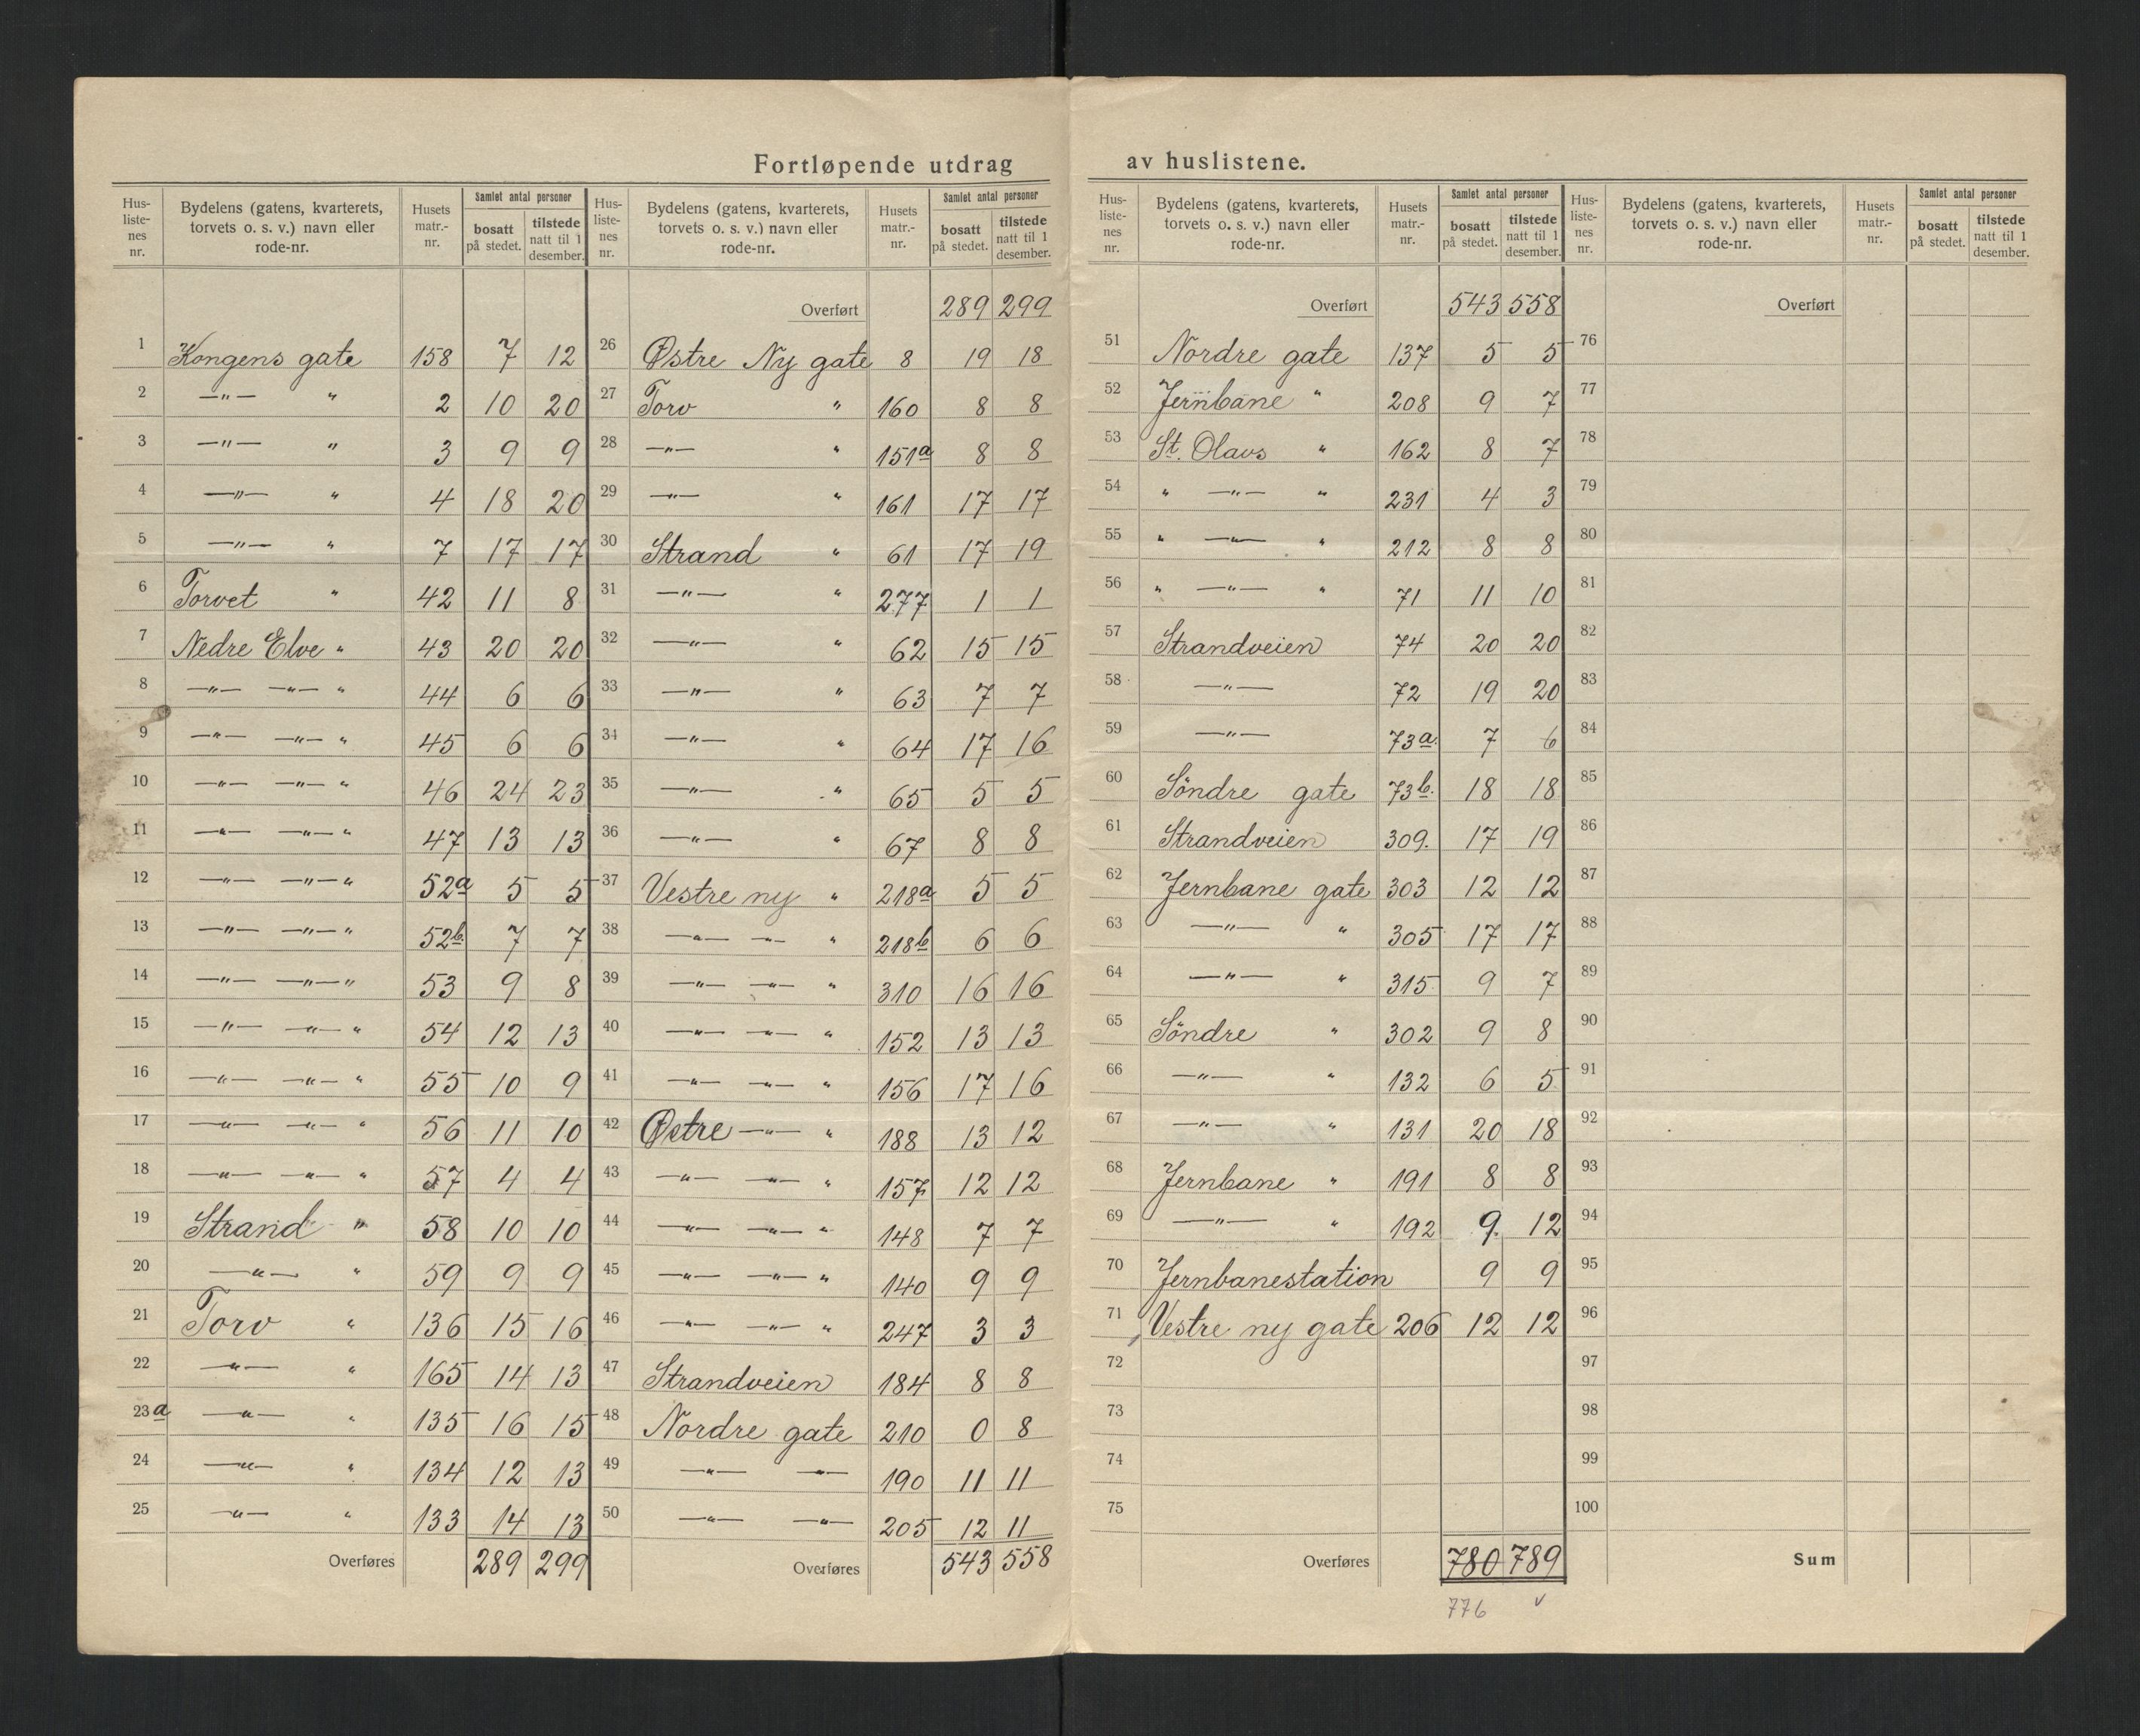 Fortløpende utdrag av huslistene.
Hus-listenes nr. | Bydelens (gatens, kvarterets, torvets o. s. v.) navn eller rode-nr. | Husets matr.-nr. | Samlet antal personer bosatt på stedet. | tilstede natt til 1 desember.
1 Kongens gate 158 7 12
2 —"— " 2 10 20
3 —"— " 3 9 9
4 —"— " 4 18 20
5 —"— " 7 17 17
6 Torvet " 42 11 8
7 Nedre Elve " 43 20 20
8 —"— —"— " 44 6 6
9 —"— —"— " 45 6 6
10 —"— —"— " 46 24 23
11 —"— —"— " 47 13 13
12 —"— —"— " 52a 5 5
13 —"— —"— " 52b. 7 7
14 —"— —"— " 53 9 8
15 —"— —"— " 54 12 13
16 —"— —"— " 55 10 9
17 —"— —"— " 56 11 10
18 —"— —"— " 57 4 4
19 Strand " 58 10 10
20 —"— " 59 9 9
21 Torv " 136 15 16
22 —"— " 165 14 13
23a —"— " 135 16 15
24 —"— " 134 12 13
25 —"— " 133 14 13
Overføres 289 299
Hus-listenes nr. | Bydelens (gatens, kvarterets, torvets o. s. v.) navn eller rode-nr. | Husets matr.-nr. | Samlet antal personer bosatt på stedet. | tilstede natt til 1 desember.
Overført 289 299
26 Østre Ny gate 8 19 18
27 Torv " 160 8 8
28 —"— " 151a 8 8
29 —"— " 161 17 17
30 Strand " 61 17 19
31 —"— " 277 1 1
32 —"— " 62 15 15
33 —"— " 63 7 7
34 —"— " 64 17 16
35 —"— " 65 5 5
36 —"— " 67 8 8
37 Vestre ny " 218a 5 5
38 —"— —"— " 218b 6 6
39 —"— —"— " 310 16 16
40 —"— —"— " 152 13 13
41 —"— —"— " 156 17 16
42 Østre —"— " 188 13 12
43 —"— —"— " 157 12 12
44 —"— —"— " 148 7 7
45 —"— —"— " 140 9 9
46 —"— —"— " 247 3 3
47 Strandveien 184 8 8
48 Nordre gate 210 0 8
49 —"— —"— 190 11 11
50 —"— —"— 205 12 11
Overføres 543 558
Hus-listenes nr. | Bydelens (gatens, kvarterets, torvets o. s. v.) navn eller rode-nr. | Husets matr.-nr. | Samlet antal personer bosatt på stedet. | tilstede natt til 1 desember.
Overført 543 558
51 Nordre gate 137 5 5
52 Jernbane " 208 9 7
53 St. Olavs " 162 8 7
54 " —"— " 231 4 3
55 " —"— " 212 8 8
56 " —"— " 71 11 10
57 Strandveien 74 20 20
58 —"— 72 19 20
59 —"— 73a. 7 6
60 Söndre gate 73b. 18 18
61 Strandveien 309. 17 19
62 Jernbane gate 303 12 12
63 —"— " 305 17 17
64 —"— " 315 9 7
65 Söndre " 302 9 8
66 —"— " 132 6 5
67 —"— " 131 20 18
68 Jernbane " 191 8 8
69 —"— " 192 9. 12
70 Jernbanestation 9 9
71 Vestre ny gate 206 12 12
72
73
74
75
Overføres 780 789
776 v
Hus-listenes nr. | Bydelens (gatens, kvarterets, torvets o. s. v.) navn eller rode-nr. | Husets matr.-nr. | Samlet antal personer bosatt på stedet. | tilstede natt til 1 desember.
Overført
76
77
78
79
80
81
82
83
84
85
86
87
88
89
90
91
92
93
94
95
96
97
98
99
100
Sum